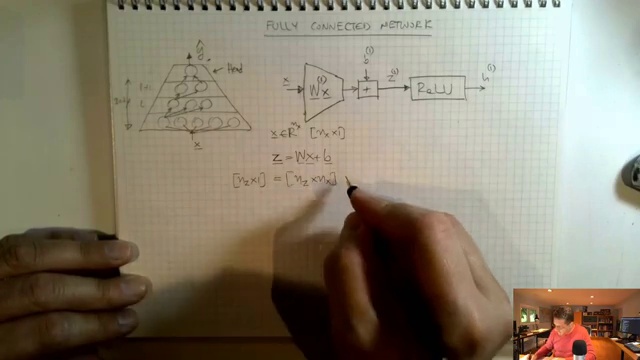 FULLY CONNECTED NETWORK
ŷ
Head
L+1
L
x
x
W^(1)x
b^(1)
+
z^(1)
ReLU
h^(1)
x ∈ R^nx [nx×1]
z = Wx + b
[nz×1] = [nz×nx]